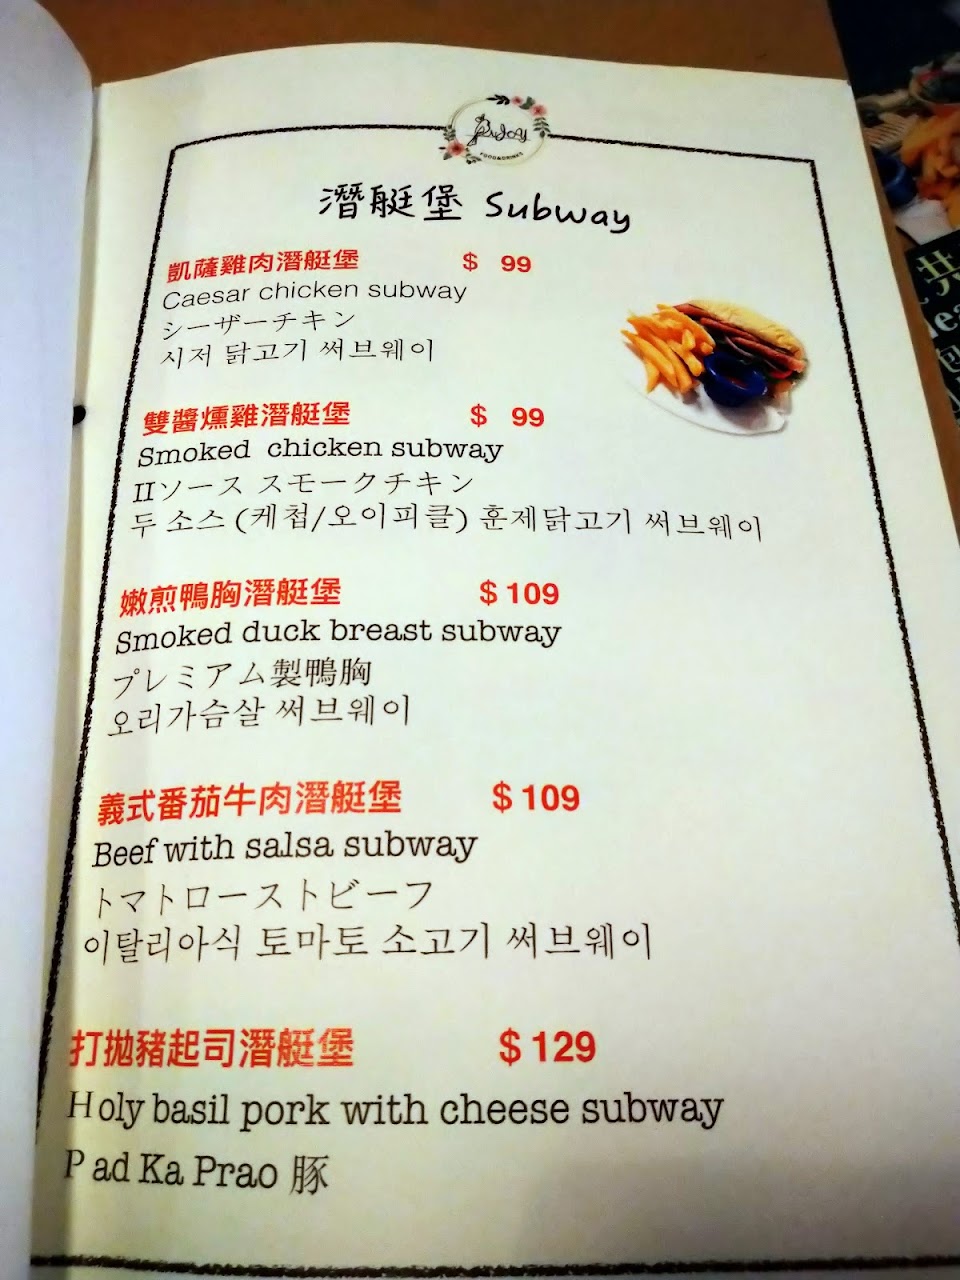 FOOD&DRINKS
潛艇堡 Subway
凱薩雞肉潛艇堡 $ 99
Caesar chicken subway
シーザーチキン
시저 닭고기 써브웨이
雙醬燻雞潛艇堡 $ 99
Smoked chicken subway
IIソース スモークチキン
두 소스 (케첩/오이피클) 훈제닭고기 써브웨이
嫩煎鴨胸潛艇堡 $ 109
Smoked duck breast subway
プレミアム製鴨胸
오리가슴살 써브웨이
義式番茄牛肉潛艇堡 $ 109
Beef with salsa subway
トマトローストビーフ
이탈리아식 토마토 소고기 써브웨이
打拋豬起司潛艇堡 $ 129
Holy basil pork with cheese subway
Pad Ka Prao 豚